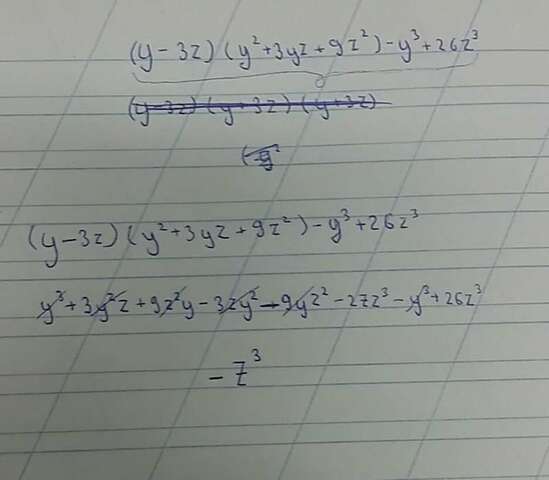 (y-3z)(y²+3yz+9z²)-y³+26z³
(y-3z)(y+3z)(y+3z)
(-y²
(y-3z)(y²+3yz+9z²)-y³+26z³
y³+3y²z+9z²y-3zy²-9yz²-27z³-y³+26z³
-z³